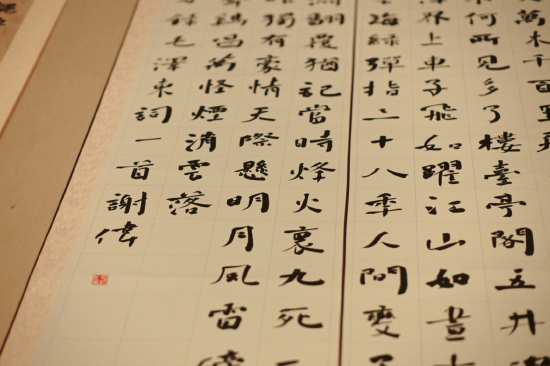 萬木千百里飛
何所見多了樓臺亭閣五井
洋界上車子飛如躍江山如畫古
海綠彈指三十八年人間變了
淵翻覆猶記當時烽火裏九死一
唯獨有豪情天際懸明月風雷
聲鷄唱萬怪煙消雲落
錄毛澤東詞一首謝偉